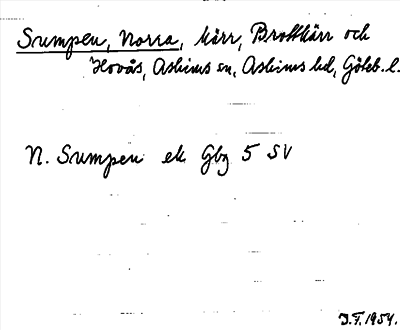 Sumpen, Norra, kärr, Brottkärr och
Hovås, Askims sn, Askims hd, Göteb. l.
N. Sumpen ek Gbg 5 SV
J.F. 1954.